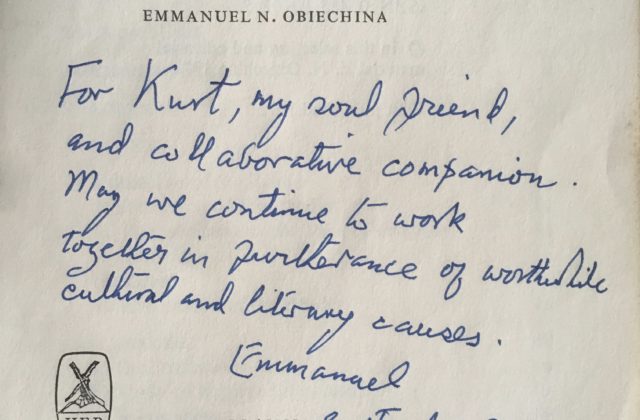 EMMANUEL N. OBIECHINA
For Kurt, my soul friend,
and collaborative companion.
May we continue to work
together in furtherance of worthwhile
cultural and literary causes.
Emmanuel
HEB